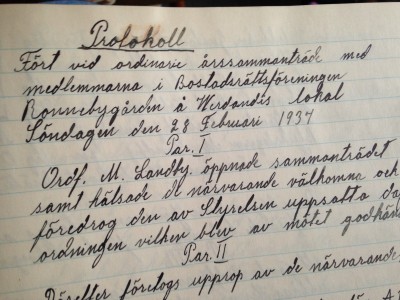 Protokoll
Fört vid ordinarie årssammanträde med
medlemmarna i Bostadsrättsföreningen
Ronnebygården å Werdandis lokal
Söndagen den 28 Februari 1937
Par. I
Ordf. M. Landby. öppnade sammanträdet
samt hälsade de närvarande välkomna och
föredrog den av Styrelsen uppsatta da
ordningen vilken blev av mötet godhän
Par. II
Därefter företogs upprop av de närvarande